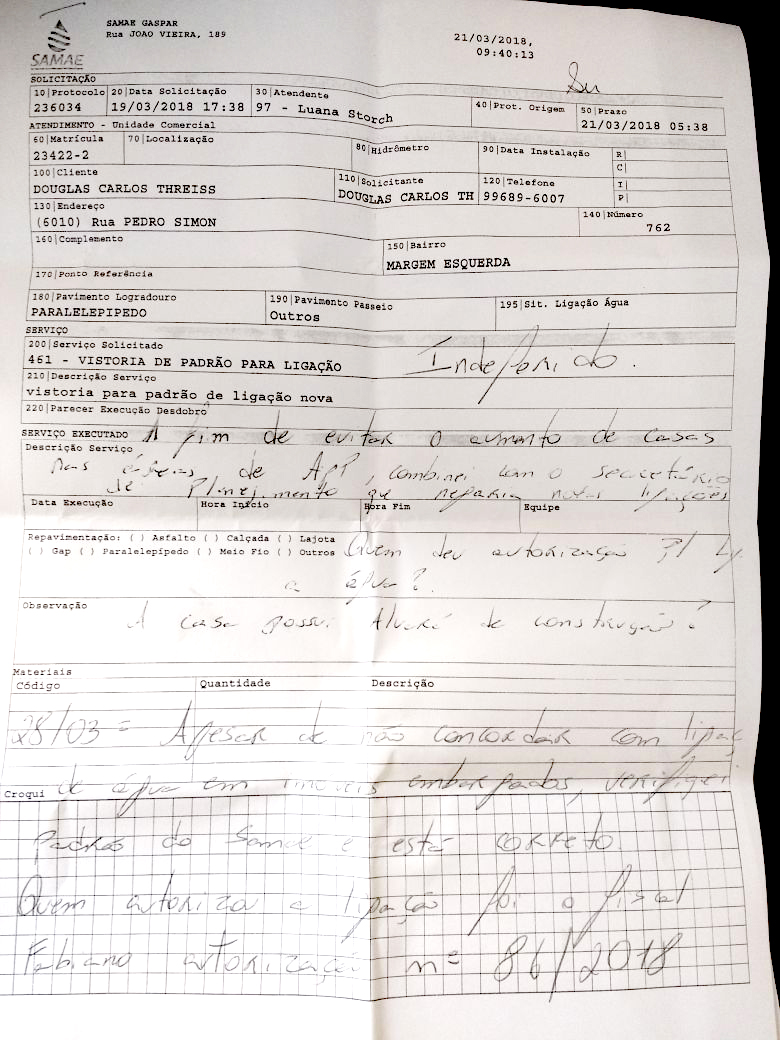 SAMAE GASPAR
Rua JOAO VIEIRA, 189
21/03/2018,
09:40:13
SAMAE
SOLICITAÇÃO
10|Protocolo 20|Data Solicitação 30|Atendente 40|Prot. Origem 50|Prazo
236034 19/03/2018 17:38 97 - Luana Storch 21/03/2018 05:38
ATENDIMENTO - Unidade Comercial
60|Matrícula 70|Localização 80|Hidrômetro 90|Data Instalação R|
23422-2 C|
100|Cliente 110|Solicitante 120|Telefone I|
DOUGLAS CARLOS THREISS DOUGLAS CARLOS TH 99689-6007 P|
130|Endereço 140|Número
(6010) Rua PEDRO SIMON 762
160|Complemento 150|Bairro
MARGEM ESQUERDA
170|Ponto Referência
180|Pavimento Logradouro 190|Pavimento Passeio 195|Sit. Ligação Água
PARALELEPIPEDO Outros
SERVIÇO
200|Serviço Solicitado
461 - VISTORIA DE PADRÃO PARA LIGAÇÃO Indeferido.
210|Descrição Serviço
vistoria para padrão de ligação nova
220|Parecer Execução Desdobro
SERVIÇO EXECUTADO A fim de evitar o aumento de casas
Descrição Serviço
nas áreas de APP, combinei com o secretário
de Planejimento que novas ligações
Data Execução Hora Início Hora Fim Equipe
Repavimentação: ( ) Asfalto ( ) Calçada ( ) Lajota
( ) Gap ( ) Paralelepípedo ( ) Meio Fio ( ) Outros Quem deu autorização p/
a água?
Observação
A casa possui Alvará de construção?
Materiais
Código Quantidade Descrição
28/03 = Apesar de não concordar com ligaç
de água em imóveis embargados, verifiquei
Croqui
Padrão do Samae e está correto.
Quem autorizou a ligação foi o fiscal
Fabiano autorização nº 86/2018